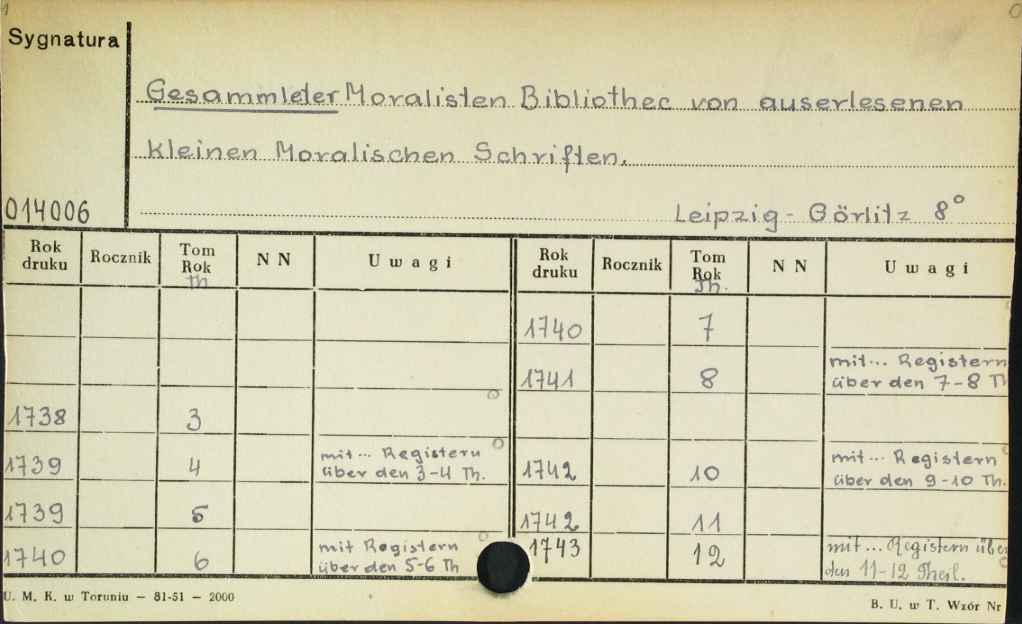 Sygnatura
Gesammleter Moralisten Bibliothec von auserlesenen
kleinen Moralischen Schriften.
014006 Leipzig - Görlitz 8°
Rok druku Rocznik Tom Rok Th N N Uwagi Rok druku Rocznik Tom Rok Th. N N Uwagi
1740 7
1741 8 mit... Registern über den 7-8 Th
1738 3
1739 4 mit... Registern über den 3-4 Th. 1742 10 mit... Registern über den 9-10 Th.
1739 5 1742 11
1740 6 mit Registern über den 5-6 Th 1743 12 mit... Registern über den 11-12 Theil.
U. M. K. w Toruniu — 81-51 — 2000 B. U. w T. Wzór Nr